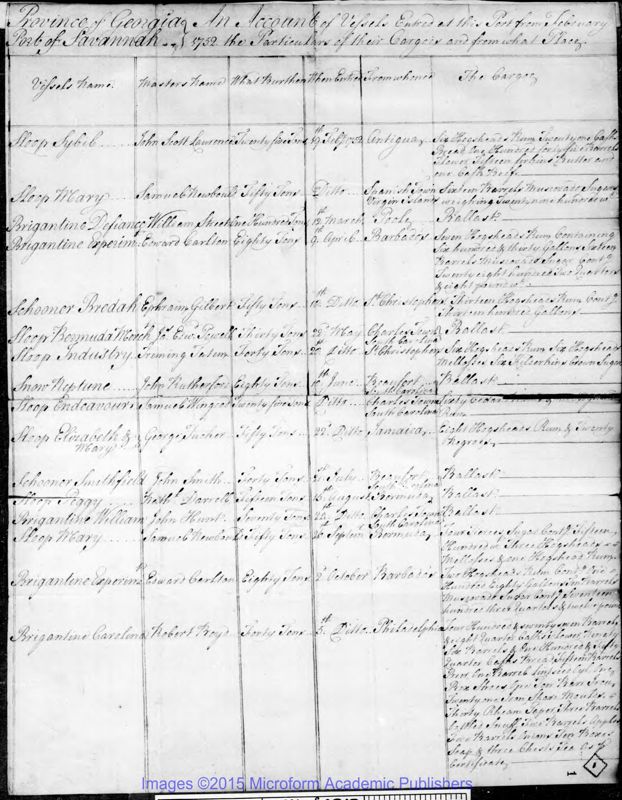 Province of Georgia } An Account of Vessels Entred at this Port from Febuary
Port of Savannah } 1752 the Particulars of their Cargoes and from what Place
Vessels Name Masters Name What Burthen When Entred From whence The Cargoe
Sloop Sybil John Scott Laurence Twenty five Tons 19th Feb 1752 Antigua Six Hogsheads Rum Twenty one Casks
Bread One Hundred forty five Barrels
Flower Fifteen firkins Butter and
one Cask Beef
Sloop Mary Samuel Newbould Fifty Tons Ditto Town Sixteen Barrels Muscovado Sugar
Virgin Islands weighing Twenty nine hundred
Brigantine Defiance William Street One Hundred Tons 12th March Poole Ballast
Brigantine Experimt Edward Carlton Eighty Tons 9th April Barbados Seven Hogsheads Rum Containing
Six hundred & thirty Gallons Sixteen
Barrels Muscovado Sugar Contg
Twenty eight hundred two Quarters
& eight pounds
Schooner Bredah Ephraim Gilbert Fifty Tons Ditto St Christophers Thirteen Hogsheads Rum Contg
Thirteen hundred Gallons
Sloop Bermuda Merch Jo Edw Powell Thirty Tons 22d May Charles Town Ballast
South Carolina
Sloop Industry Tatem Forty Tons Ditto St Christophers Six Hogsheads Rum Six Hogsheads
Mellasses Six brown Sugar
Snow Neptune John Rutherford Eighty Tons 10th June Beaufort Ballast
South Carolina
Sloop Endeavour Samuel Wingood Twenty five Tons Ditto Charles Town Sixty Cedar
South Carolina Rum
Sloop Elizabeth & George Tucker Fifty Tons 22d Ditto Jamaica Eight Hogsheads Rum & Twenty
Mary Negroes
Schooner Smithfield John Smith Forty Tons July Beaufort Ballast
South Carolina
Sloop Peggy Darrell Fifteen Tons 16 August Bermuda Ballast
Brigantine William John Hunt Seventy Tons 22d Ditto Charles Town Ballast
South Carolina
Sloop Mary Samuel Newbould Fifty Tons 26 Septem Bermuda Four Tierces Sugar Contg Fifteen
Hundred Three Hogsheads
Mellasses & two Hogshead Rum
Brigantine Experimt Edward Carlton Eighty Tons 2d October Barbados Two Hogsheads Rum Contg One
Hundred Eighty Gallons Ten Barrels
Muscovado Sugar Contg Seventeen
hundred three Quarters & twelve pounds
Brigantine Carolina Robert Boyd Forty Tons 5th Ditto Philadelphia Four Hundred & seventy seven Barrels
& eight Quarter Casks Flower Ninety
Six Barrels & One Hundred & fifty
Quarter Casks Bread Fifteen Barrels
Beer One Barrel One
Box Shoes One Ton Barr Iron
Twenty one Iron Share Moulds
Thirty Rheam Paper Three Barrels
Bottled Snuff Two Barrels Apples
Two Barrels Onions Ten Boxes
Soap & three Chests Tea as p
Certificate
1
1
Images ©2015 Microform Academic Publishers